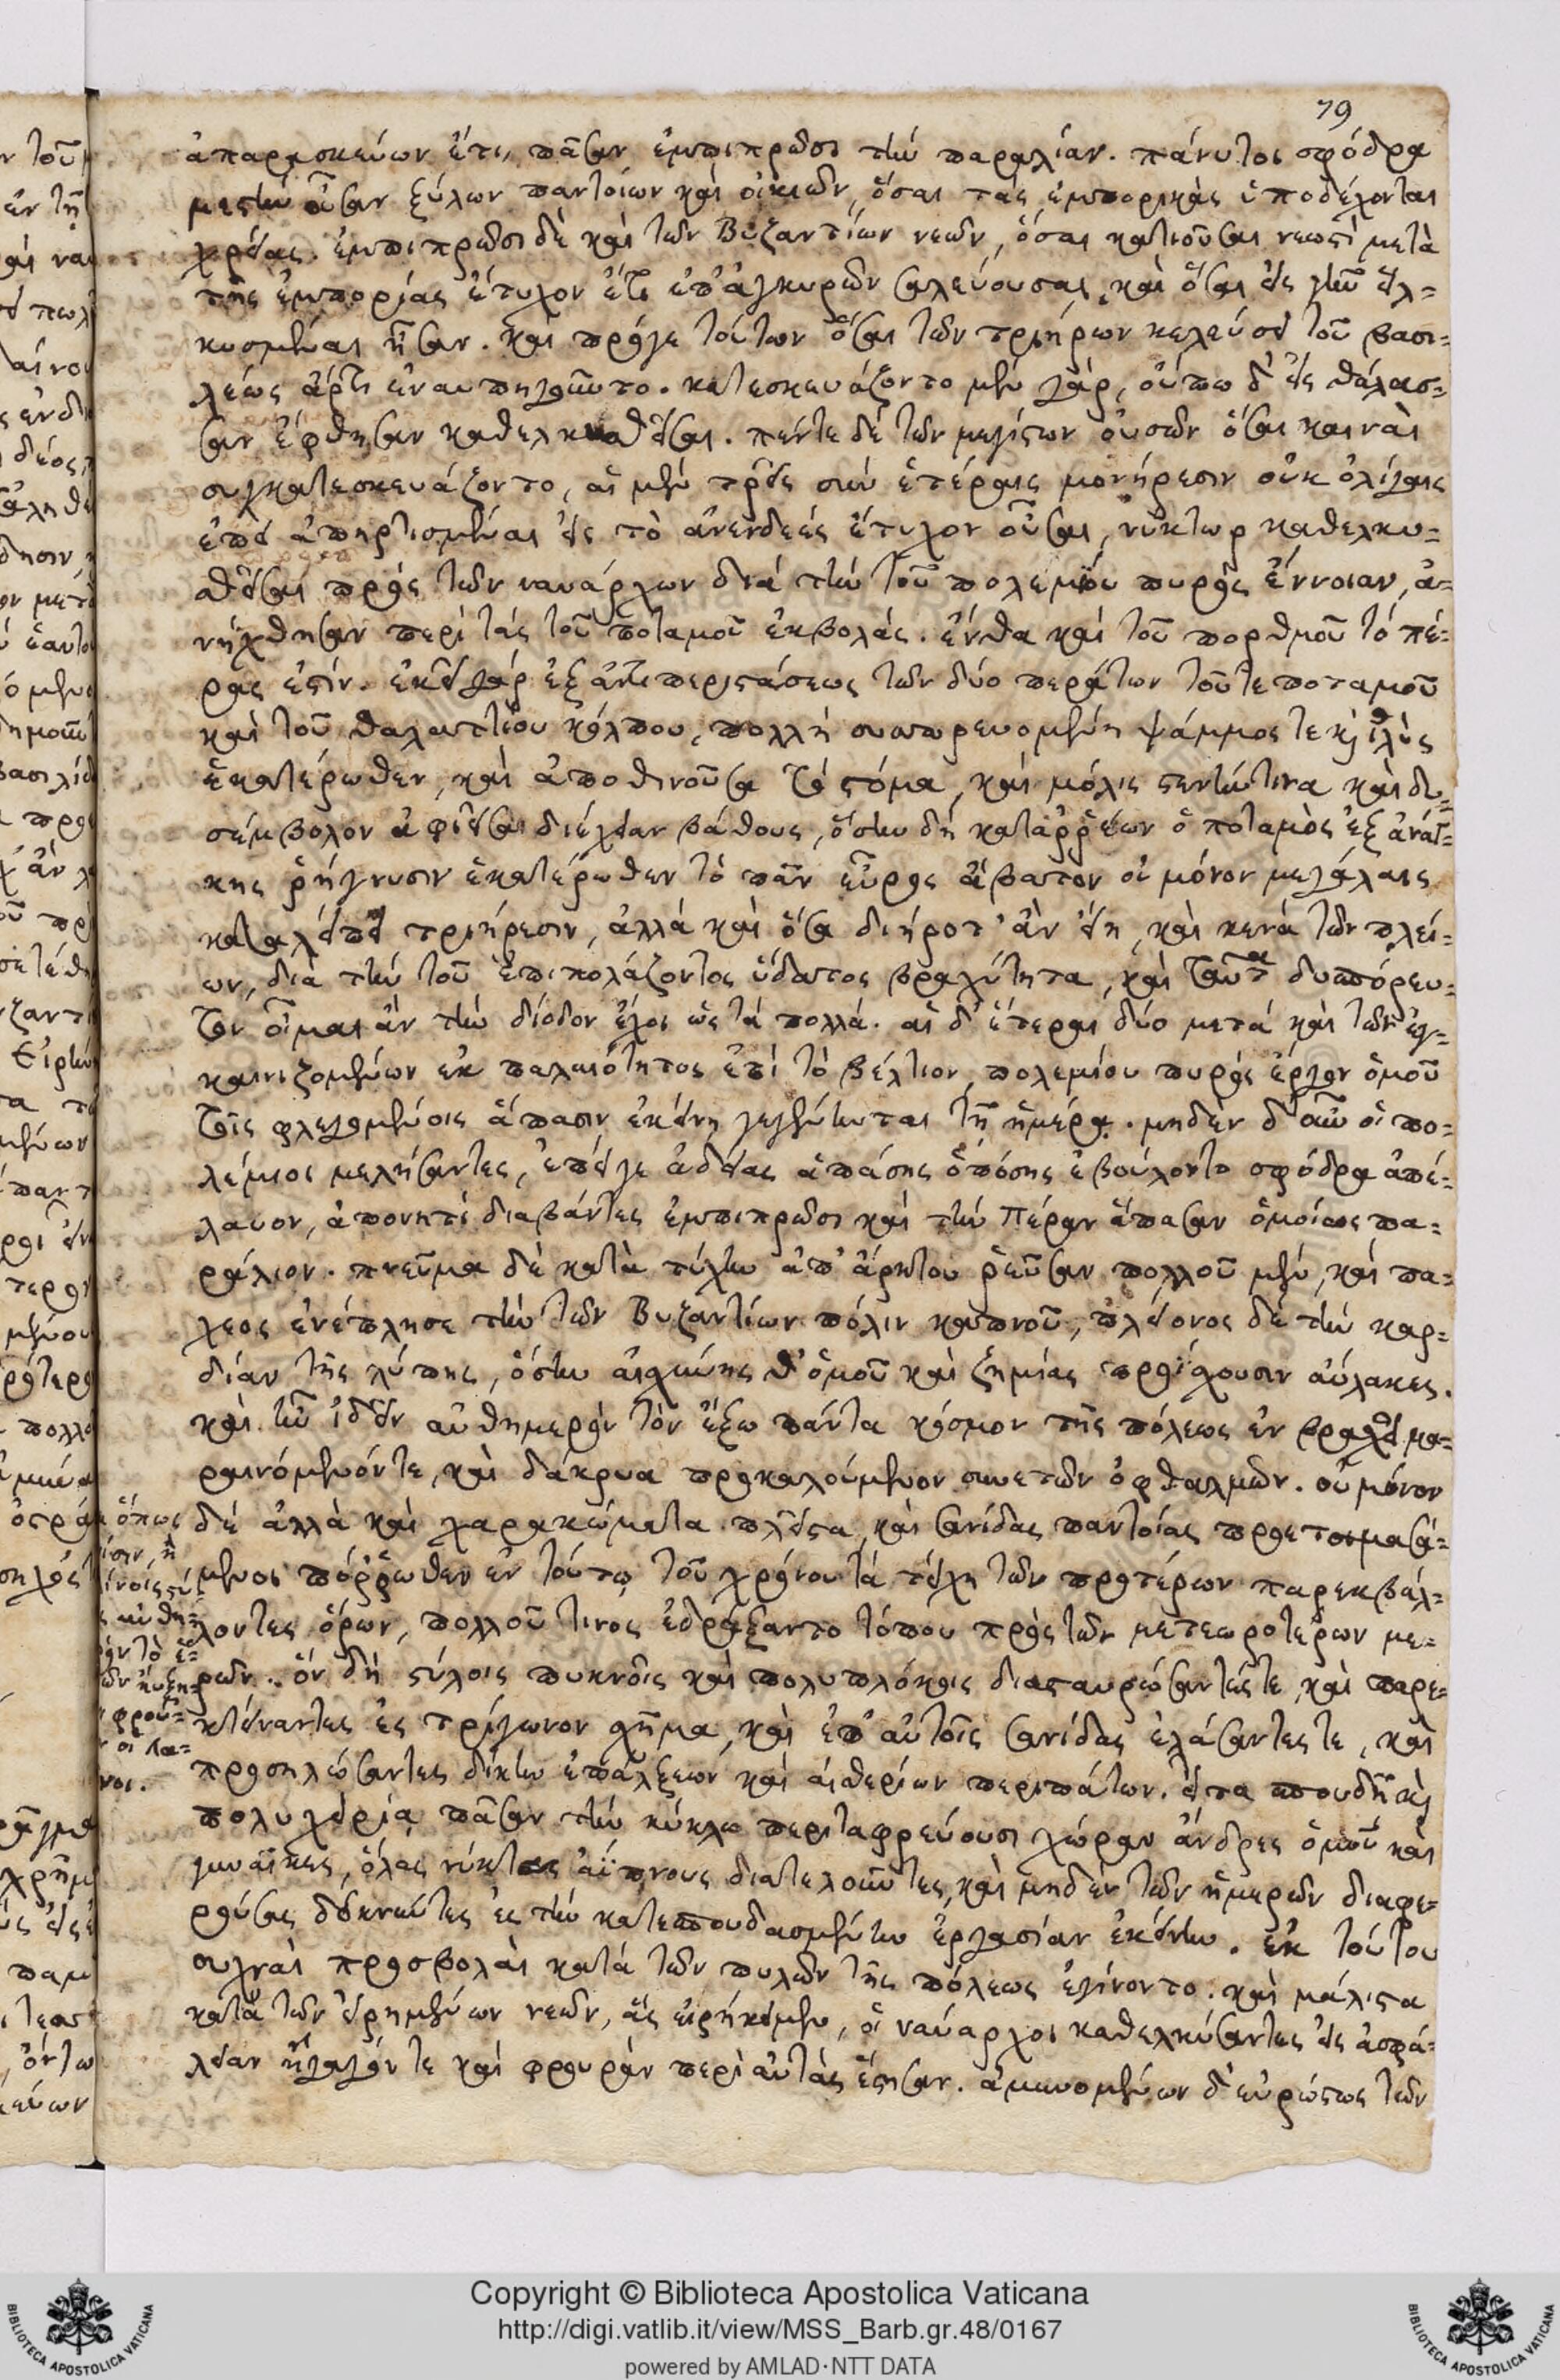 79
ἀπαρασκεύων ἔτι, πᾶσαν ἐμπιπρῶσι τὴν παραλίαν. πάνυ τοι σφόδρα
μεστὴν οὖσαν ξύλων παντοίων καὶ οἰκιῶν, ὅσαι τὰς ἐμπορικὰς ὑποδέχονται
χρείας. ἐμπιπρῶσι δὲ καὶ τῶν Βυζαντίων νεῶν, ὅσαι κατιοῦσαι νεωστὶ μετὰ
τῆς ἐμπορίας ἔτυχον ἔτι ἐπ' ἀγκυρῶν σαλεύουσαι, καὶ ὅσαι εἰς γῆν εἱλ-
κυσμέναι ἦσαν. καὶ πρός γε τούτων ὅσαι τῶν τριήρων κελεύσει τοῦ βασι-
λέως ἄρτι ἐναυπηγοῦντο. κατεσκευάζοντο μὲν γάρ, οὔπω δ' εἰς θάλασ-
σαν ἔφθησαν καθελκυσθεῖσαι. πέντε δὲ τῶν μεγίστων οὐσῶν ὅσαι καιναὶ
συγκατεσκευάζοντο, αἱ μὲν τρεῖς σὺν ἑτέραις μονήρεσιν οὐκ ὀλίγαις
ἐπεὶ ἀπηρτισμέναι εἰς τὸ ἀνενδεὲς ἔτυχον οὖσαι, νύκτωρ καθελκυ-
σθεῖσαι πρὸς τῶν ναυάρχων διὰ τὴν τοῦ πολεμίου πυρὸς ἔννοιαν, ἀ-
νήχθησαν περὶ τὰς τοῦ ποταμοῦ ἐκβολάς. ἔνθα καὶ τοῦ πορθμοῦ τὸ πέ-
ρας ἐστίν. ἐκεῖ γὰρ ἐξ ἀντιπεριστάσεως τῶν δύο περάτων τοῦ τε ποταμοῦ
καὶ τοῦ θαλαττίου κόλπου, πολλὴ συναπορευομένη ψάμμος τε κὶ ἰλὺς
ἑκατέρωθεν, καὶ ἀποθινοῦσα τὸ στόμα, καὶ μόλις στενήν τινα καὶ δυ-
σέμβολον ἀφεῖσαι διέχειαν βάθους, ὅσην δὴ καταῤῥέων ὁ ποταμὸς ἐξ ἀνάγ-
κης ῥήγνυσιν ἑκατέρωθεν τὸ πᾶν εὖρος ἄβατον οὐ μόνον μεγάλαις
καταλείπει τριήρεσιν, ἀλλὰ καὶ ὅσα διήροτ' ἂν εἴη, καὶ κενὰ τῶν πλεί-
ων, διὰ τὴν τοῦ ἐπιπολάζοντος ὕδατος βραχύτητα, καὶ ταῦτα δυσπόρευ-
τον οἶμαι ἂν τὴν δίοδον ἔχοι ὡς τὰ πολλά. αἱ δ' ἕτεραι δύο μετὰ καὶ τῶν ἐγ-
καινιζομένων ἐκ παλαιότητος ἐπὶ τὸ βέλτιον, πολεμίου πυρὸς ἔργον ὁμοῦ
τοῖς φλεγομένοις ἅπασιν ἐκείνῃ γεγένηνται τῇ ἡμέρᾳ. μηδὲν δ' οὖν οἱ πο-
λέμιοι μελήσαντες, ἐπεί γε ἀδείας ἁπάσης ὁπόσης ἐβούλοντο σφόδρα ἀπέ-
λαυον, ἀπονητὶ διαβάντες ἐμπιπρῶσι καὶ τὴν Πέραν ἅπασαν ὁμοίως πα-
ράλιον. πνεῦμα δὲ κατὰ τύχην ἀπ' ἄρκτου ῥεῦσαν πολλοῦ μὲν, καὶ πα-
χέος ἐνέπλησε τὴν τῶν Βυζαντίων πόλιν καπνοῦ, πλείονος δὲ τὴν καρ-
δίαν τῆς λύπης, ὅσην αἰσχύνης θ' ὁμοῦ καὶ ζημίας προΐσχουσιν αὔλακες.
καὶ ἦν ἰδεῖν αὐθημερὸν τὸν ἔξω πάντα κόσμον τῆς πόλεως ἐν βραχεῖ μα-
ραινόμενόν τε, καὶ δάκρυα προκαλούμενον συνετῶν ὀφθαλμῶν. οὐ μόνον
δὲ ἀλλὰ καὶ χαρακώματα πλεῖστα, καὶ σανίδας παντοίας προετοιμασά-
μενοι πόῤῥωθεν ἐν τούτῳ τοῦ χρόνου τὰ τείχη τῶν προτέρων παρεκβάλ-
λοντες ὅρων, πολλοῦ τινος ἐδράξαντο τόπου πρὸς τῶν μετεωροτέρων με-
ρῶν. ὃν δὴ στύλοις πυκνοῖς καὶ πολυπλόκοις διασταυρώσαντές τε, καὶ παρε-
κτείναντες ἐς τρίγωνον σχῆμα, καὶ ἐπ' αὐτοῖς σανίδας ἐλάσαντές τε, καὶ
προσηλώσαντες δίκην ἐπάλξεων καὶ αἰθερίων περιπάτων. εἶτα σπουδῇ κὶ
πολυχειρίᾳ πᾶσαν τὴν κύκλῳ περιταφρεύουσι χώραν ἄνδρες ὁμοῦ καὶ
γυναῖκες, ὅλας νύκτας ἀΰπνους διατελοῦντες, καὶ μηδὲν τῶν ἡμερῶν διαφε-
ρούσας δεικνύντες ἐς τὴν κατεσπουδασμένην ἐργασίαν ἐκείνην. ἐκ τούτου
συχναὶ προσβολαὶ κατὰ τῶν πυλῶν τῆς πόλεως ἐγίνοντο. καὶ μάλιστα
κατὰ τῶν εἰρημένων νεῶν, ἃς εἰρήκειμεν, οἱ ναύαρχοι καθελκύσαντες εἰς ἀσφά-
λειαν ἤγαγόν τε καὶ φρουρὰν περὶ αὐτὰς ἔστησαν. ἀμυνομένων δ' εὐρώστως τῶν
Copyright © Biblioteca Apostolica Vaticana
http://digi.vatlib.it/view/MSS_Barb.gr.48/0167
powered by AMLAD·NTT DATA
BIBLIOTECA APOSTOLICA VATICANA
BIBLIOTECA APOSTOLICA VATICANA